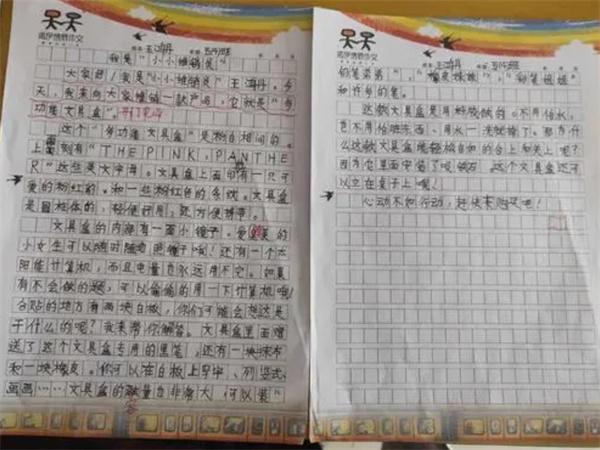 呆呆
我是“小小推销员”
大家好，我是“小小推销员”王海丹。今
天，我来向大家推销一款产品，它就是“多
功能文具盒”。开门见山
这个“多功能文具盒”是粉白相间的。
上面刻有“THE PINK, PANTHE
R”这些是大字母。文具盒上面印有一只可
爱的粉红豹。和一些粉红色的条纹。文具盒
是圆柱体的，轻便耐用，还方便携带。
文具盒的内部有一面小镜子。爱臭美的
小女生可以随时随地照镜子哦！还有一个太
阳能计算机，而且电量永远用不完。如果
有不会做的题，可以偷偷的用一下计算机哦！
合贴的地方有两块白板，你们可能会想这是
干什么的呢？我来帮你解答。文具盒里面赠
送了这个文具盒专用的黑笔，还有一块抹布
和一块橡皮。你可以在白板上写字、列竖式、
画画……文具盒的容量也非常大，可以装“
呆呆
铅笔弟弟”，“橡皮妹妹”，“钢笔姐姐”
和许多的笔。
这款文具盒是用 做的。不用怕水，
也不用怕脏东西，用水一洗就掉了。那为什
么这款文具盒能轻松自如的合上和关上呢？
因为它里面安装了吸铁石，这个文具盒还可
以立在桌子上哦！
心动不如行动，赶快来购买吧！